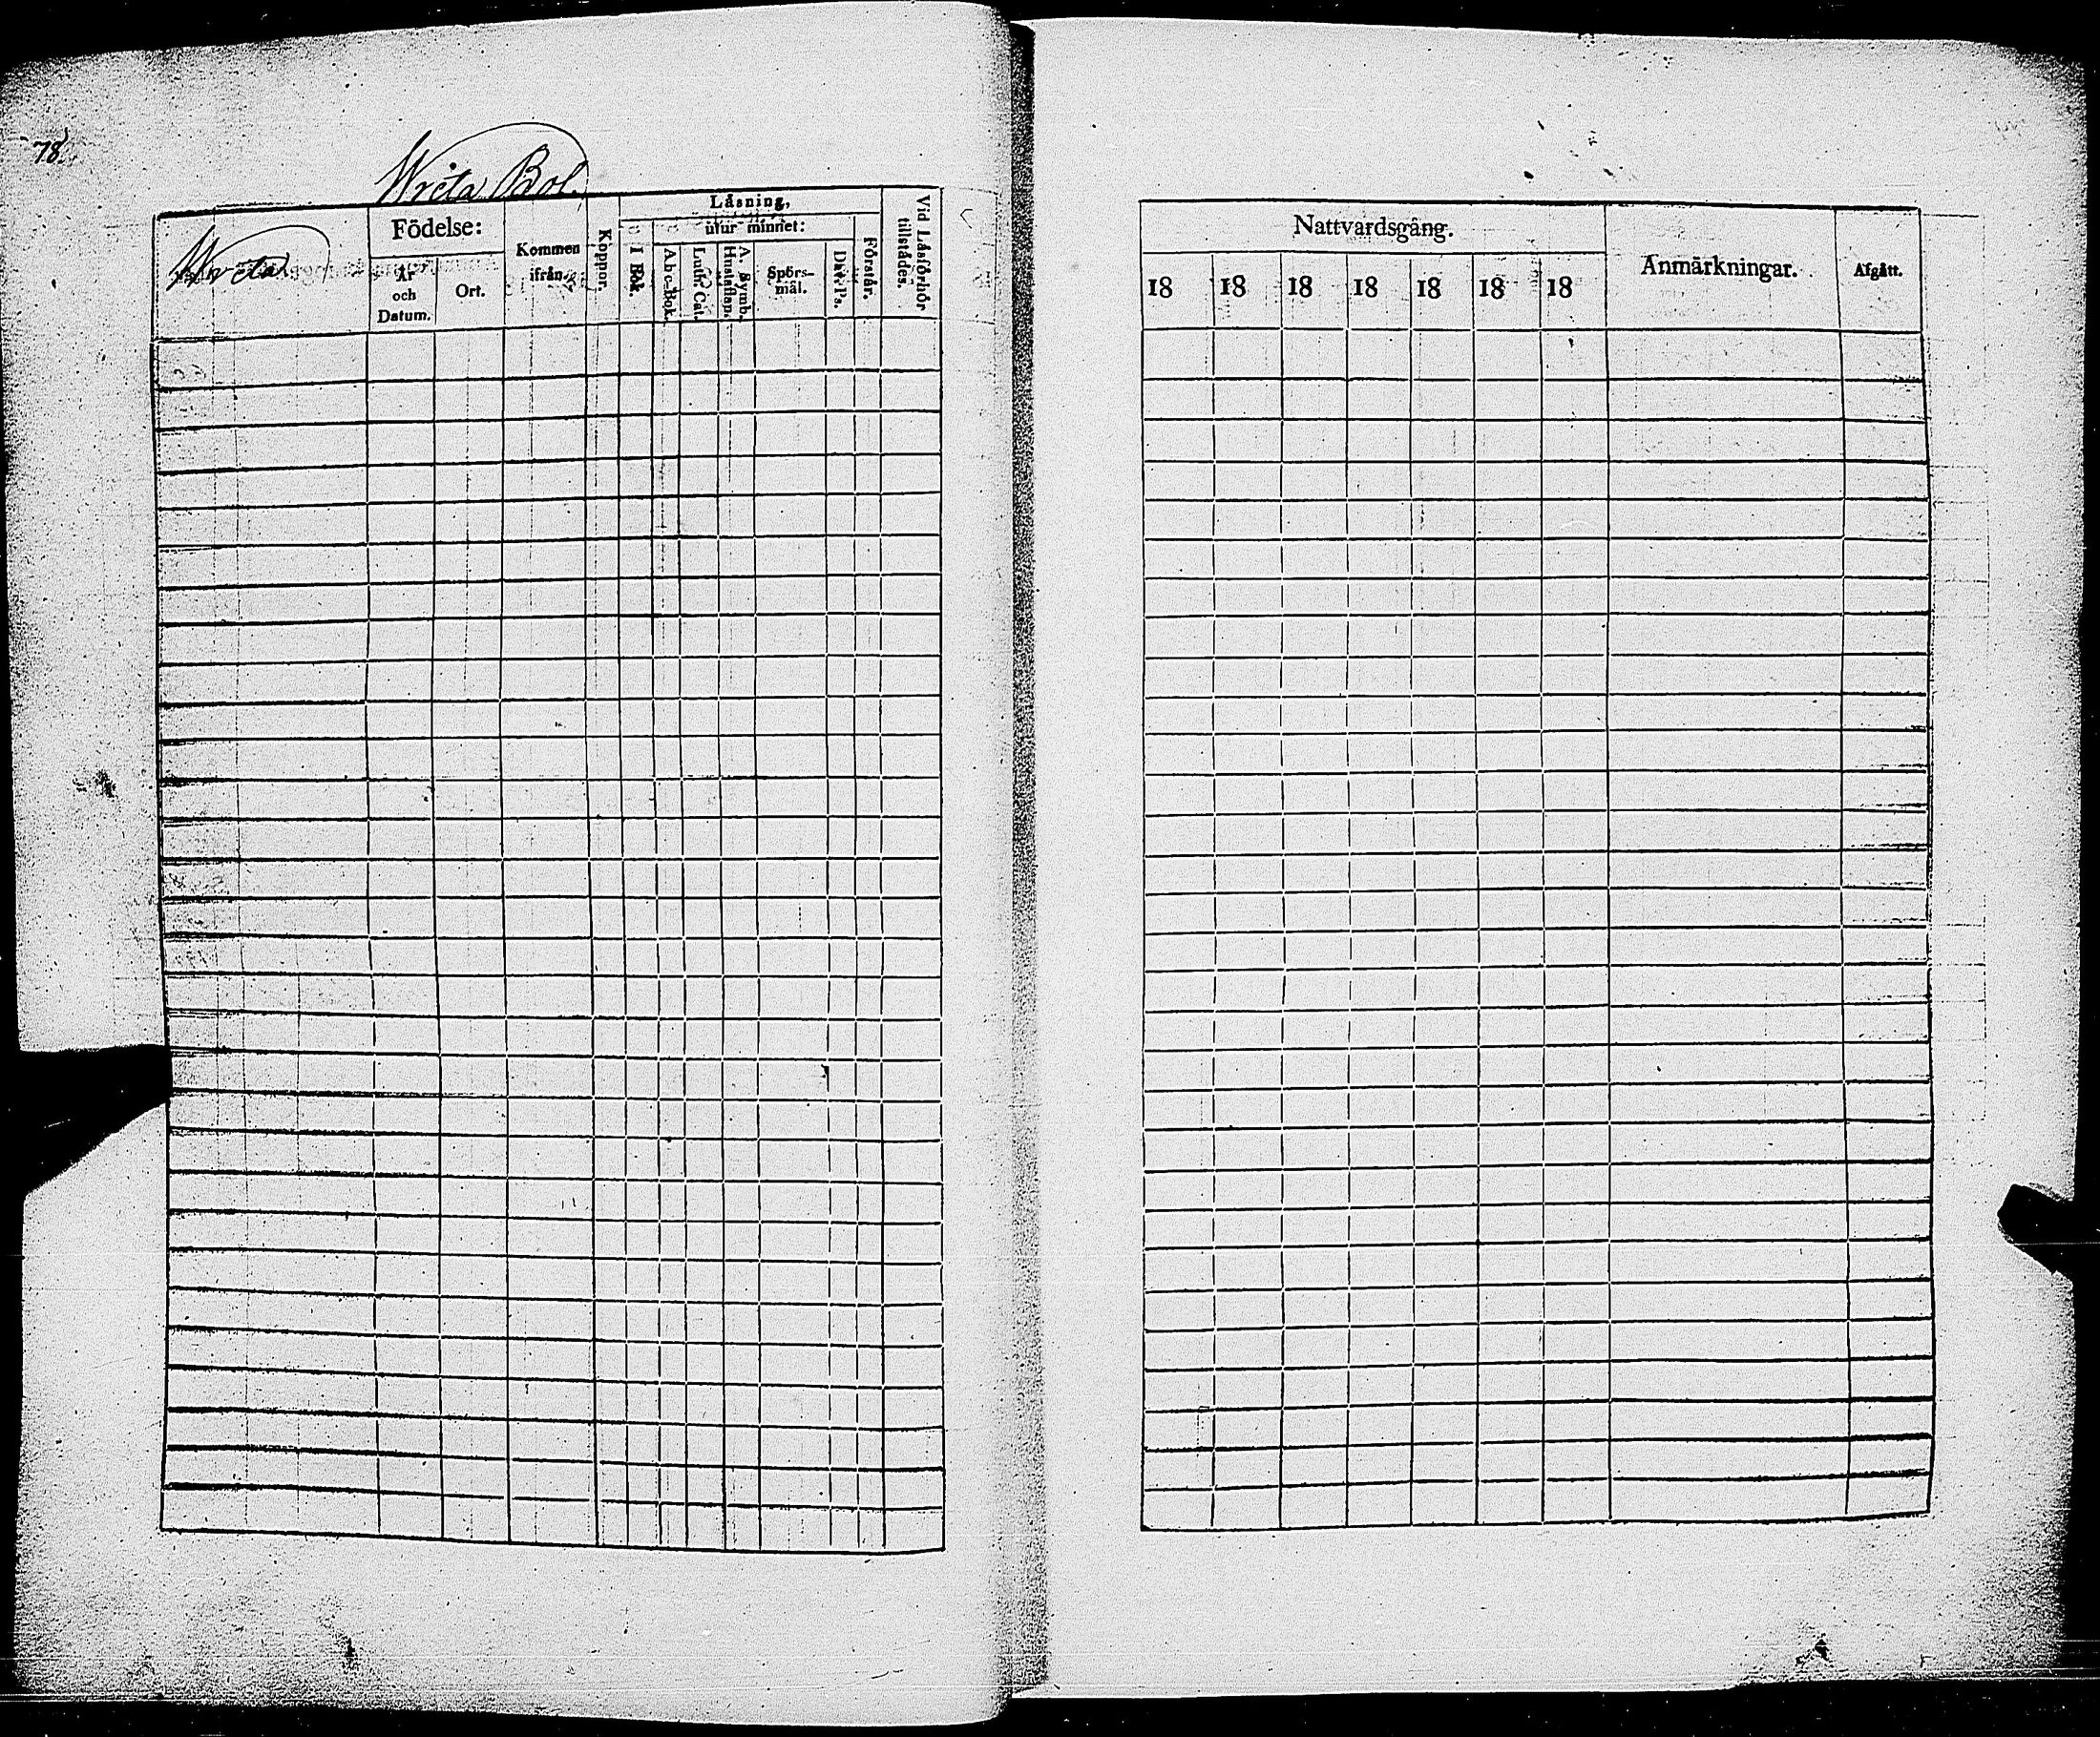 78.
Wreta Bol.
Wreta
Födelse:
År
och
Datum.
Ort.
Kommen
ifrån
Koppor.
Läsning,
utur minnet:
I Bok.
Abc-Bok.
Luth. Cat.
A. Symb.
Hustaflan.
Spörs-
mål.
Dav. Ps.
Förstår.
Vid Läsförhör
tillstädes.
Nattvardsgång.
18 18 18 18 18 18 18
Anmärkningar.
Afgått.